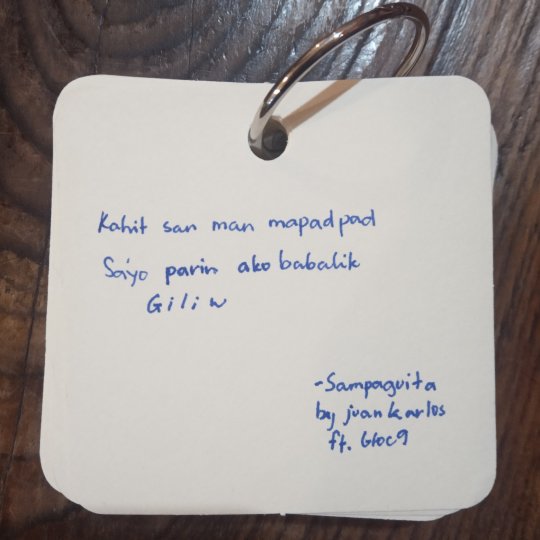 Kahit san man mapadpad
Sa'yo parin ako babalik
Giliw
-Sampaguita
by juan karlos
ft. Gloc9